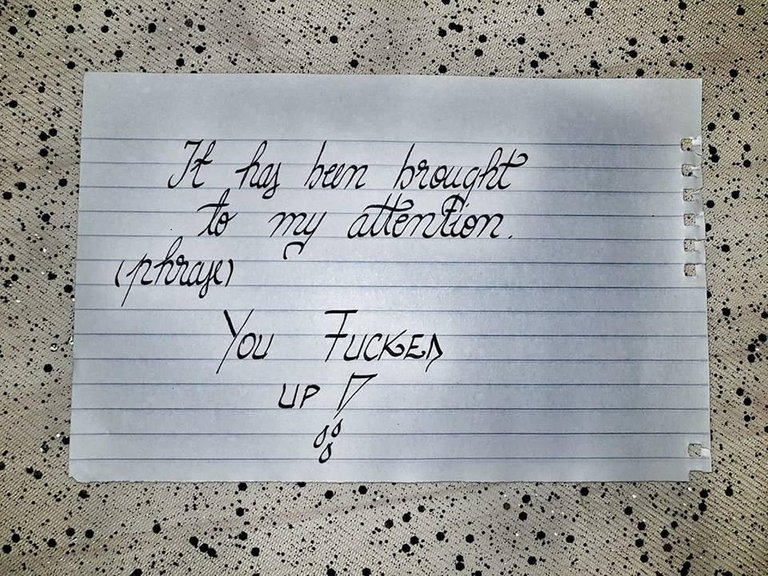 It has been brought
to my attention.
(phrase)
You FUCKED
UP!